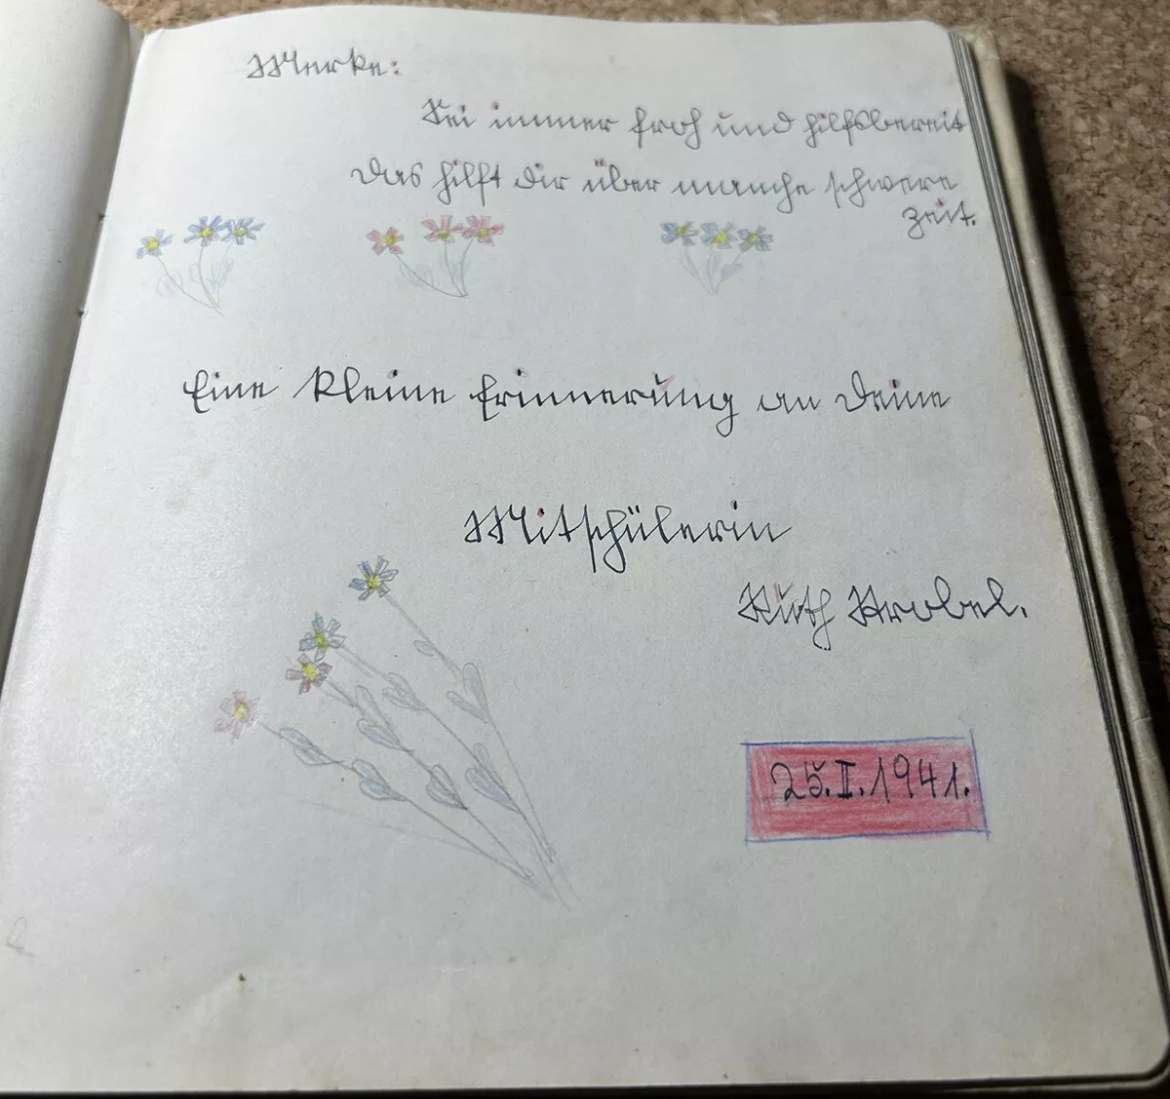 Merke:
Sei immer froh und hilfsbereit
Das hilft dir über manche schwere
Zeit.
Eine kleine Erinnerung an Deine
Mitschülerin
Ruth
25.I.1941.